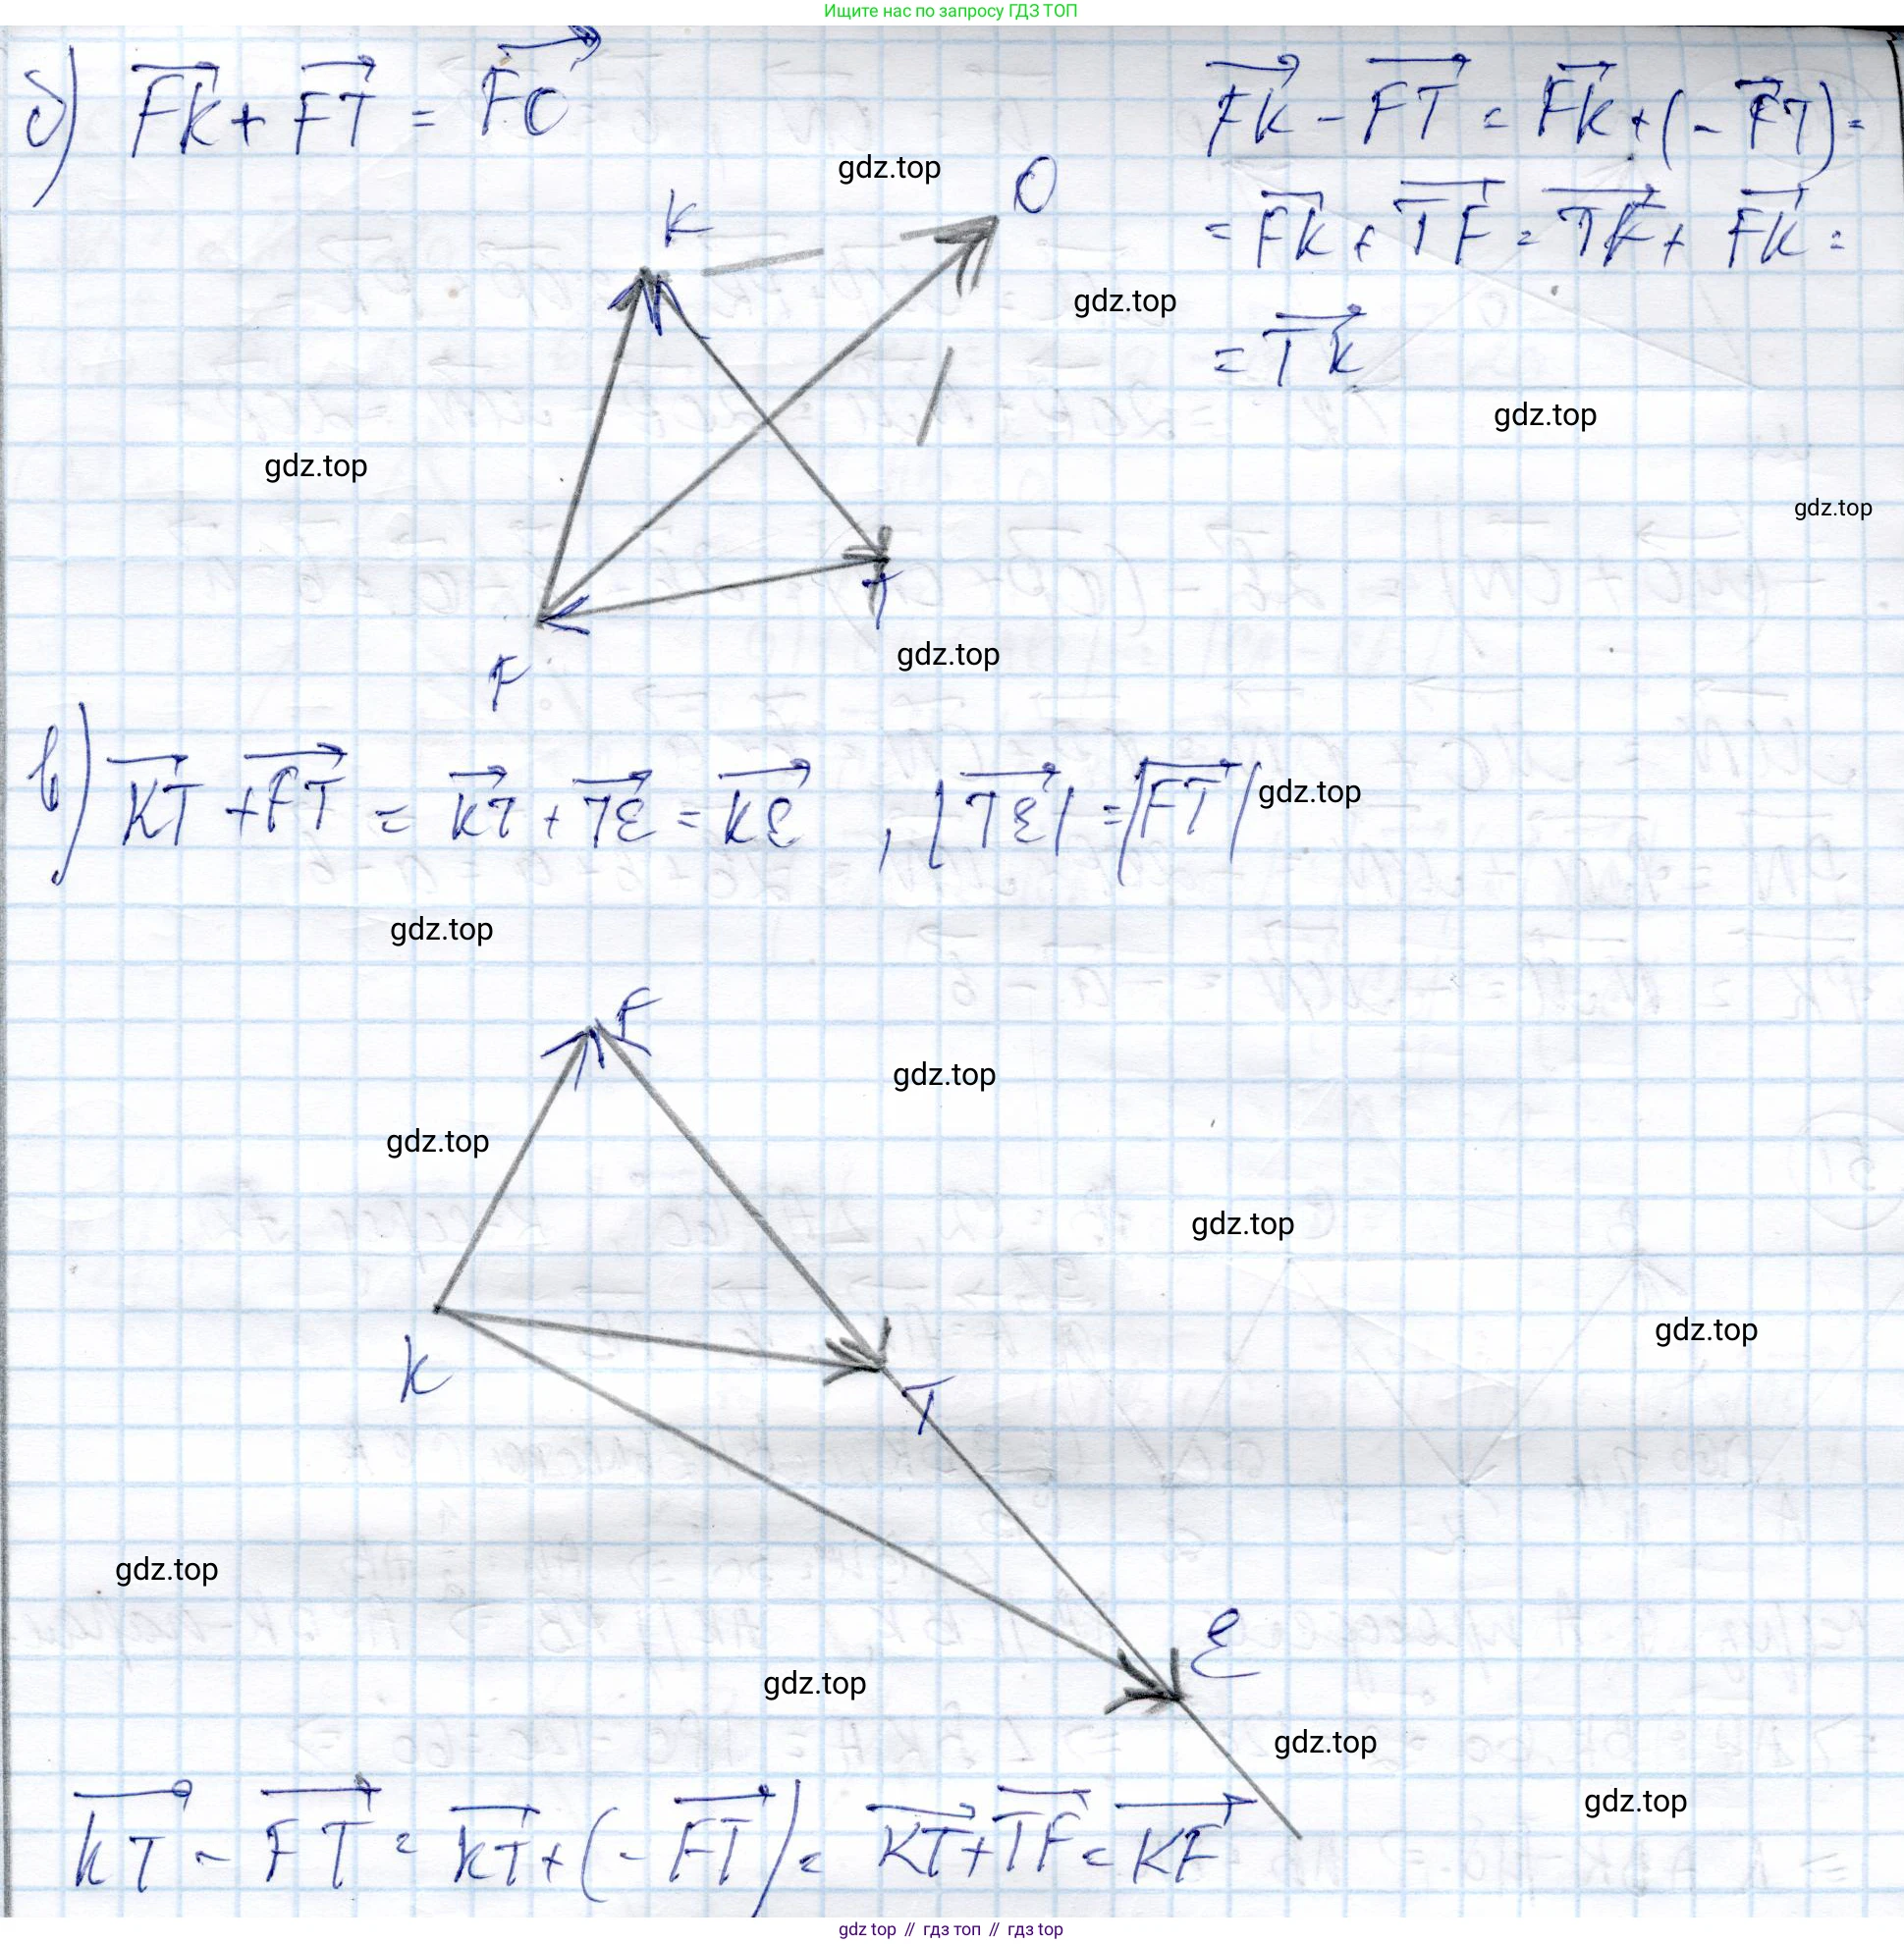 Ищите нас по запросу ГДЗ ТОП
б) FK + FT = FO
FK - FT = FK + (- FT) =
= FK + TF = TF + FK =
= TK
gdz.top
K
O
gdz.top
gdz.top
gdz.top
gdz.top
T
gdz.top
F
в) KT + FT = KT + TE = KE , |TE| = |FT|
gdz.top
gdz.top
F
gdz.top
gdz.top
gdz.top
gdz.top
K
T
gdz.top
E
gdz.top
gdz.top
gdz.top
KT - FT = KT + (- FT) = KT + TF = KF
gdz top // гдз топ // гдз top